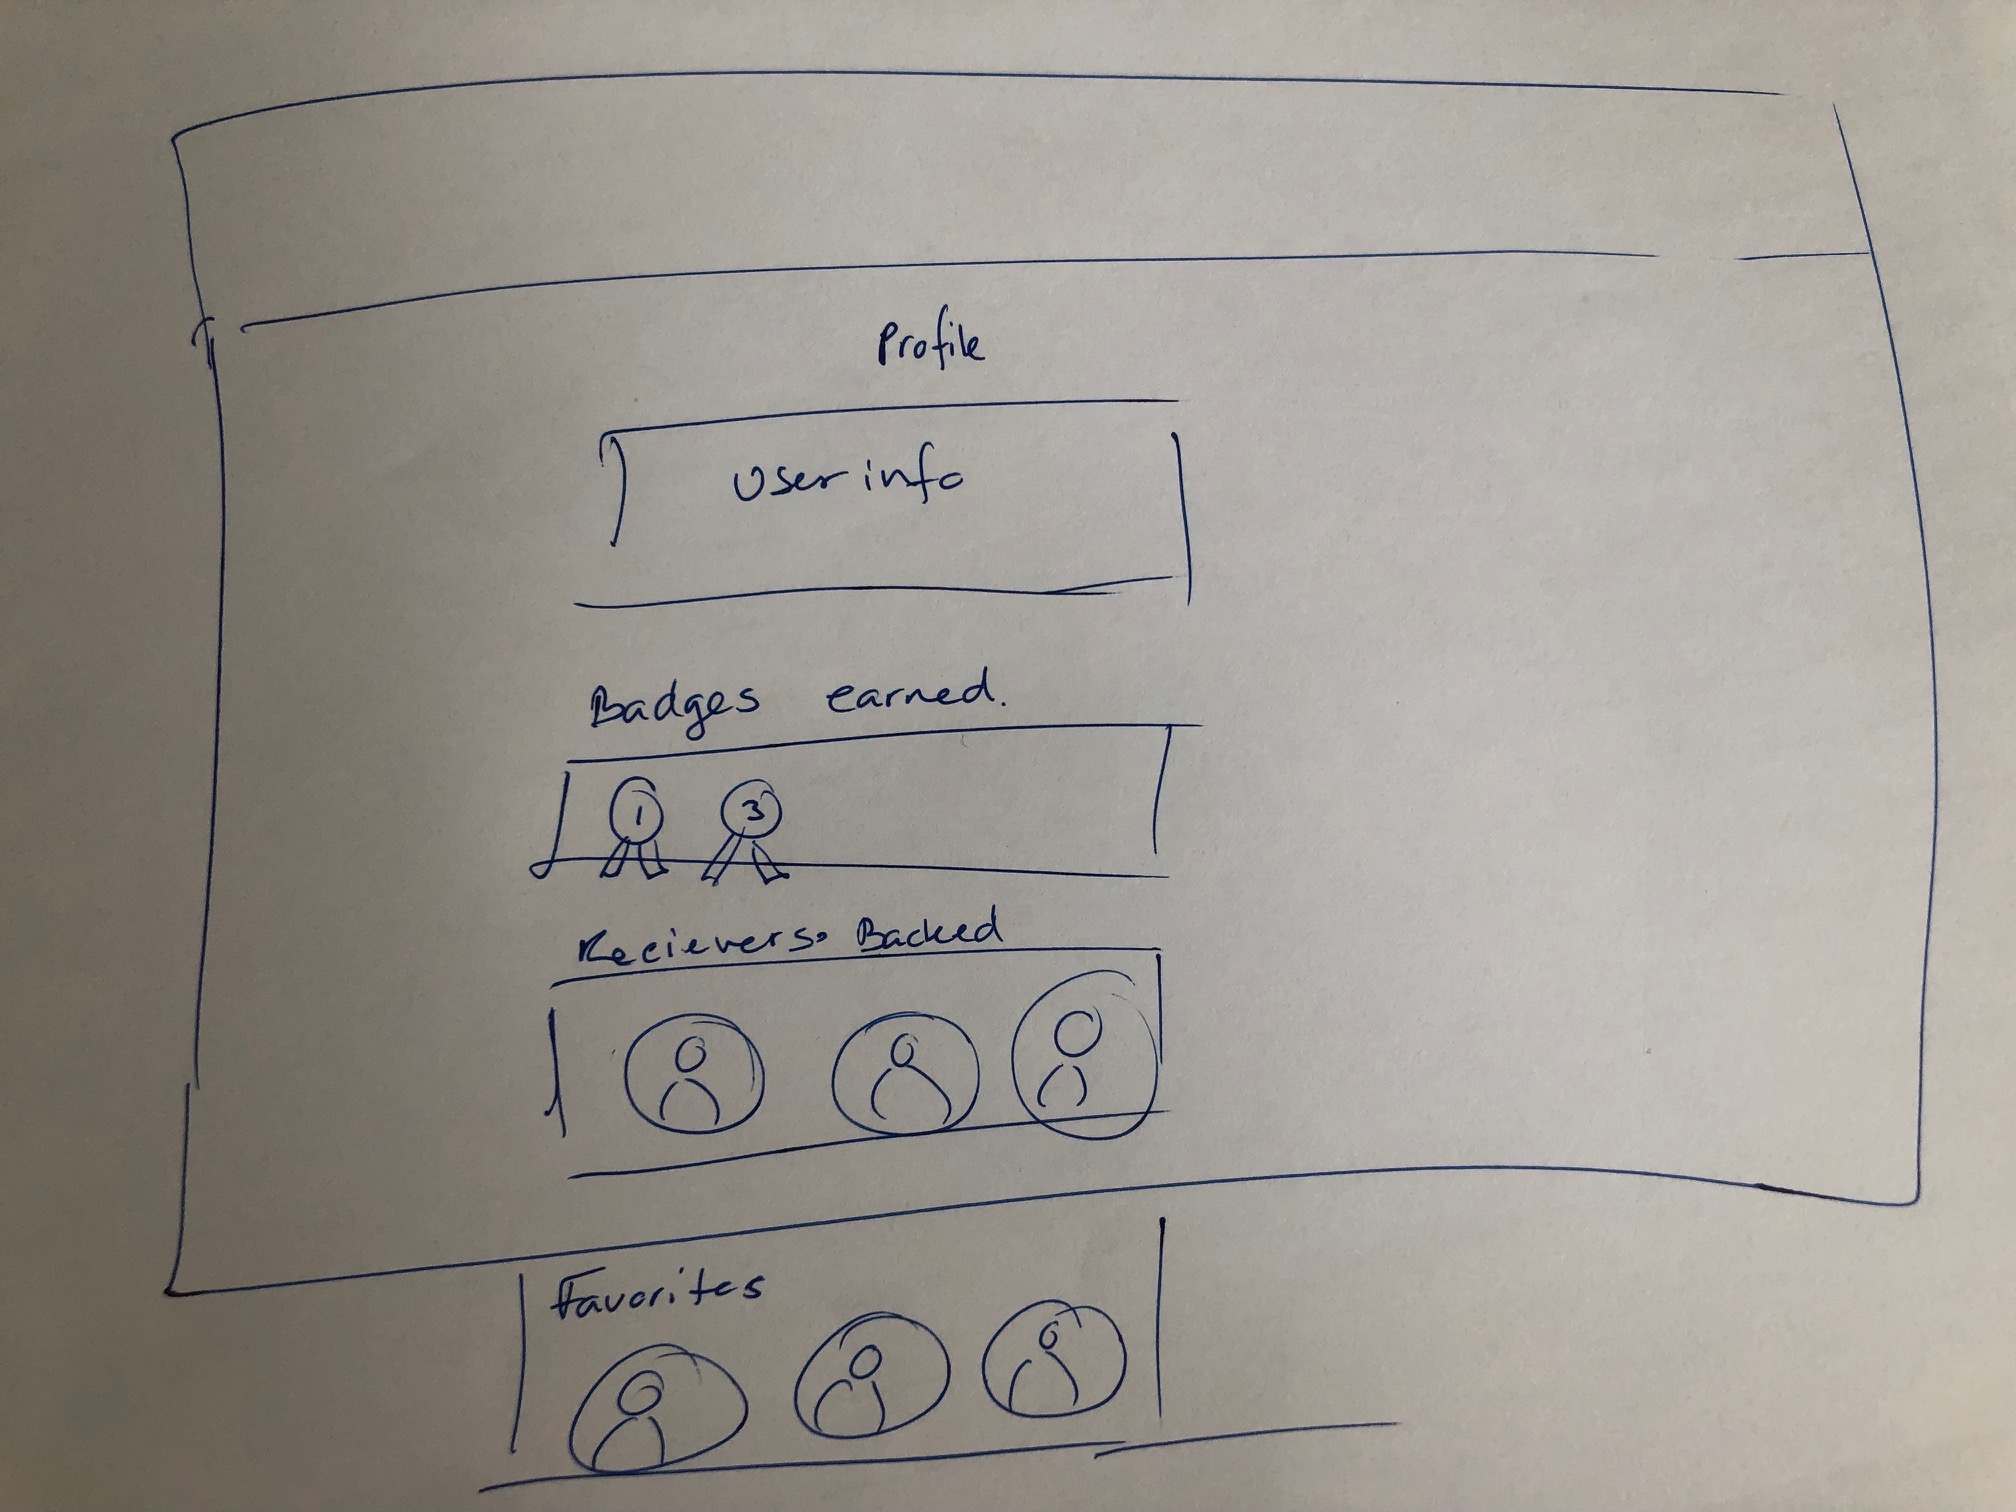 Profile
User info
Badges earned.
1 3
Recievers Backed
Favorites